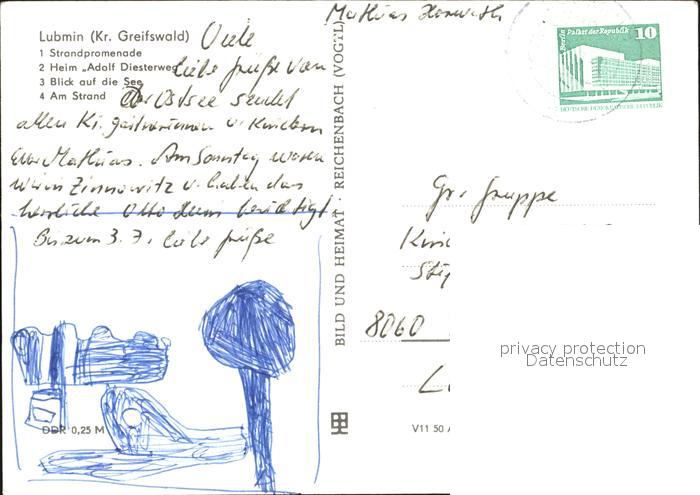 Lubmin (Kr. Greifswald)
1 Strandpromenade
2 Heim „Adolf Diesterweg"
3 Blick auf die See
4 Am Strand
Viele
liebe Grüße von
der Ostsee sendet
allen Ki. gärtnerinnen u. Kindern
Euer Mathias. Am Sonntag waren
wir in Zinnowitz u. haben das
herrliche Otto Heim besichtigt.
Bis zum 3. 7. liebe Grüße
DDR 0,25 M
BILD UND HEIMAT REICHENBACH (VOGTL)
Mathias
Berlin Palast der Republik 10
DEUTSCHE DEMOKRATISCHE REPUBLIK
Gr. Gruppe
8060
V11 50
privacy protection
Datenschutz